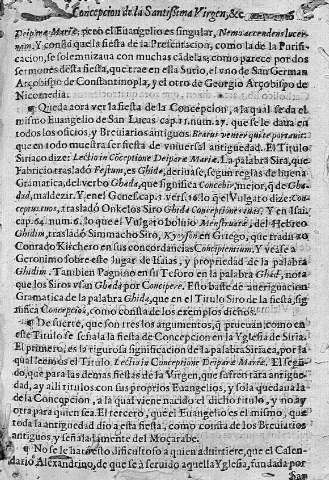 Concepcion de la Santissima Virgen, &c.
Deiparæ Mariæ, pero el Euangelio es singular, Nemo accendens lucer-
nam. Y consta que la fiesta de la Presentacion, como la de la Purifi-
cacion, se solemnizaua con muchas cãdelas, como parece por dos
sermones desta fiesta, que trae en esta Surio, el vno de San German
Arçobispo de Constantinopla, y el otro de Georgio Arçobispo de
Nicomedia.
¶ Queda aora ver la fiesta de la Concepcion, a la qual se da el
mismo Euangelio de San Lucas. cap. 11. num. 27. que se le daua en
todos los oficios, y Breuiarios antiguos Beatus venter qui te portauit:
que en todo muestra ser fiesta de vniuersal antiguedad. El Titulo
Siriaco dize: Lectio in Cõceptione Deiparæ Mariæ. La palabra Sira, que
Fabricio trasladò Festum, es Ghida, deriuase, segun reglas de buena
Gramatica, del verbo Ghada, que significa Concebir, mejor, q̃ de Gha-
dad, maldezir. Y en el Genes. cap. vers. 16. lo q̃ el Vulgato dize: Con-
ceptus tuos, trasladò Onkelos Siro Ghida Conceptione tues. Y en Isai,
cap. 64. num. 6. lo que el Vulgato boluio Menstruatæ, del Hebreo
Ghidim, trasladò Simmacho Siro, en Griego, que traduzio
Conrado Kirchero en sus concordancias Concipientium. Y vease a
Geronimo sobre este lugar de Isaias, y propriedad de la palabra
Ghidim. Tambien Pagnino en su Tesoro en la palabra Ghad, nota
que los Siros vsan Ghada por Concipere. Esto baste de aueriguacion
Gramatica de la palabra Ghida, que en el Titulo Siro de la fiesta, sig
nifica Concepcion, como consta de los exemplos dichos.
¶ De suerte, que son tres los argumentos, q̃ prueuan, como en
este Titulo se señala la fiesta de Concepcion en la Yglesia de Siria.
El primero, es la rigurosa significacion de la palabra Siriaca, por la
qual leemos el Titulo Lectio in Conceptione Deiparæ Mariæ. El segũ-
do, que para las demas fiestas de la Virgen, que sufren tãta antigue-
dad, ay alli titulos con sus proprios Euangelios, y sola quedaua la
de la Concepcion, a la qual viene nacido el dicho titulo, y no ay
otra para quien sea. El tercero, que el Euangelio es el mismo, que
toda la antiguedad dio a esta fiesta, como consta de los Breuiarios
antiguos, y señaladamente del Moçarabe.
¶ No se le harà esto dificultoso a quien aduirtiere, que el Calen-
dario Alexandrino, de que se à seruido aquella Yglesia, fundada por
San